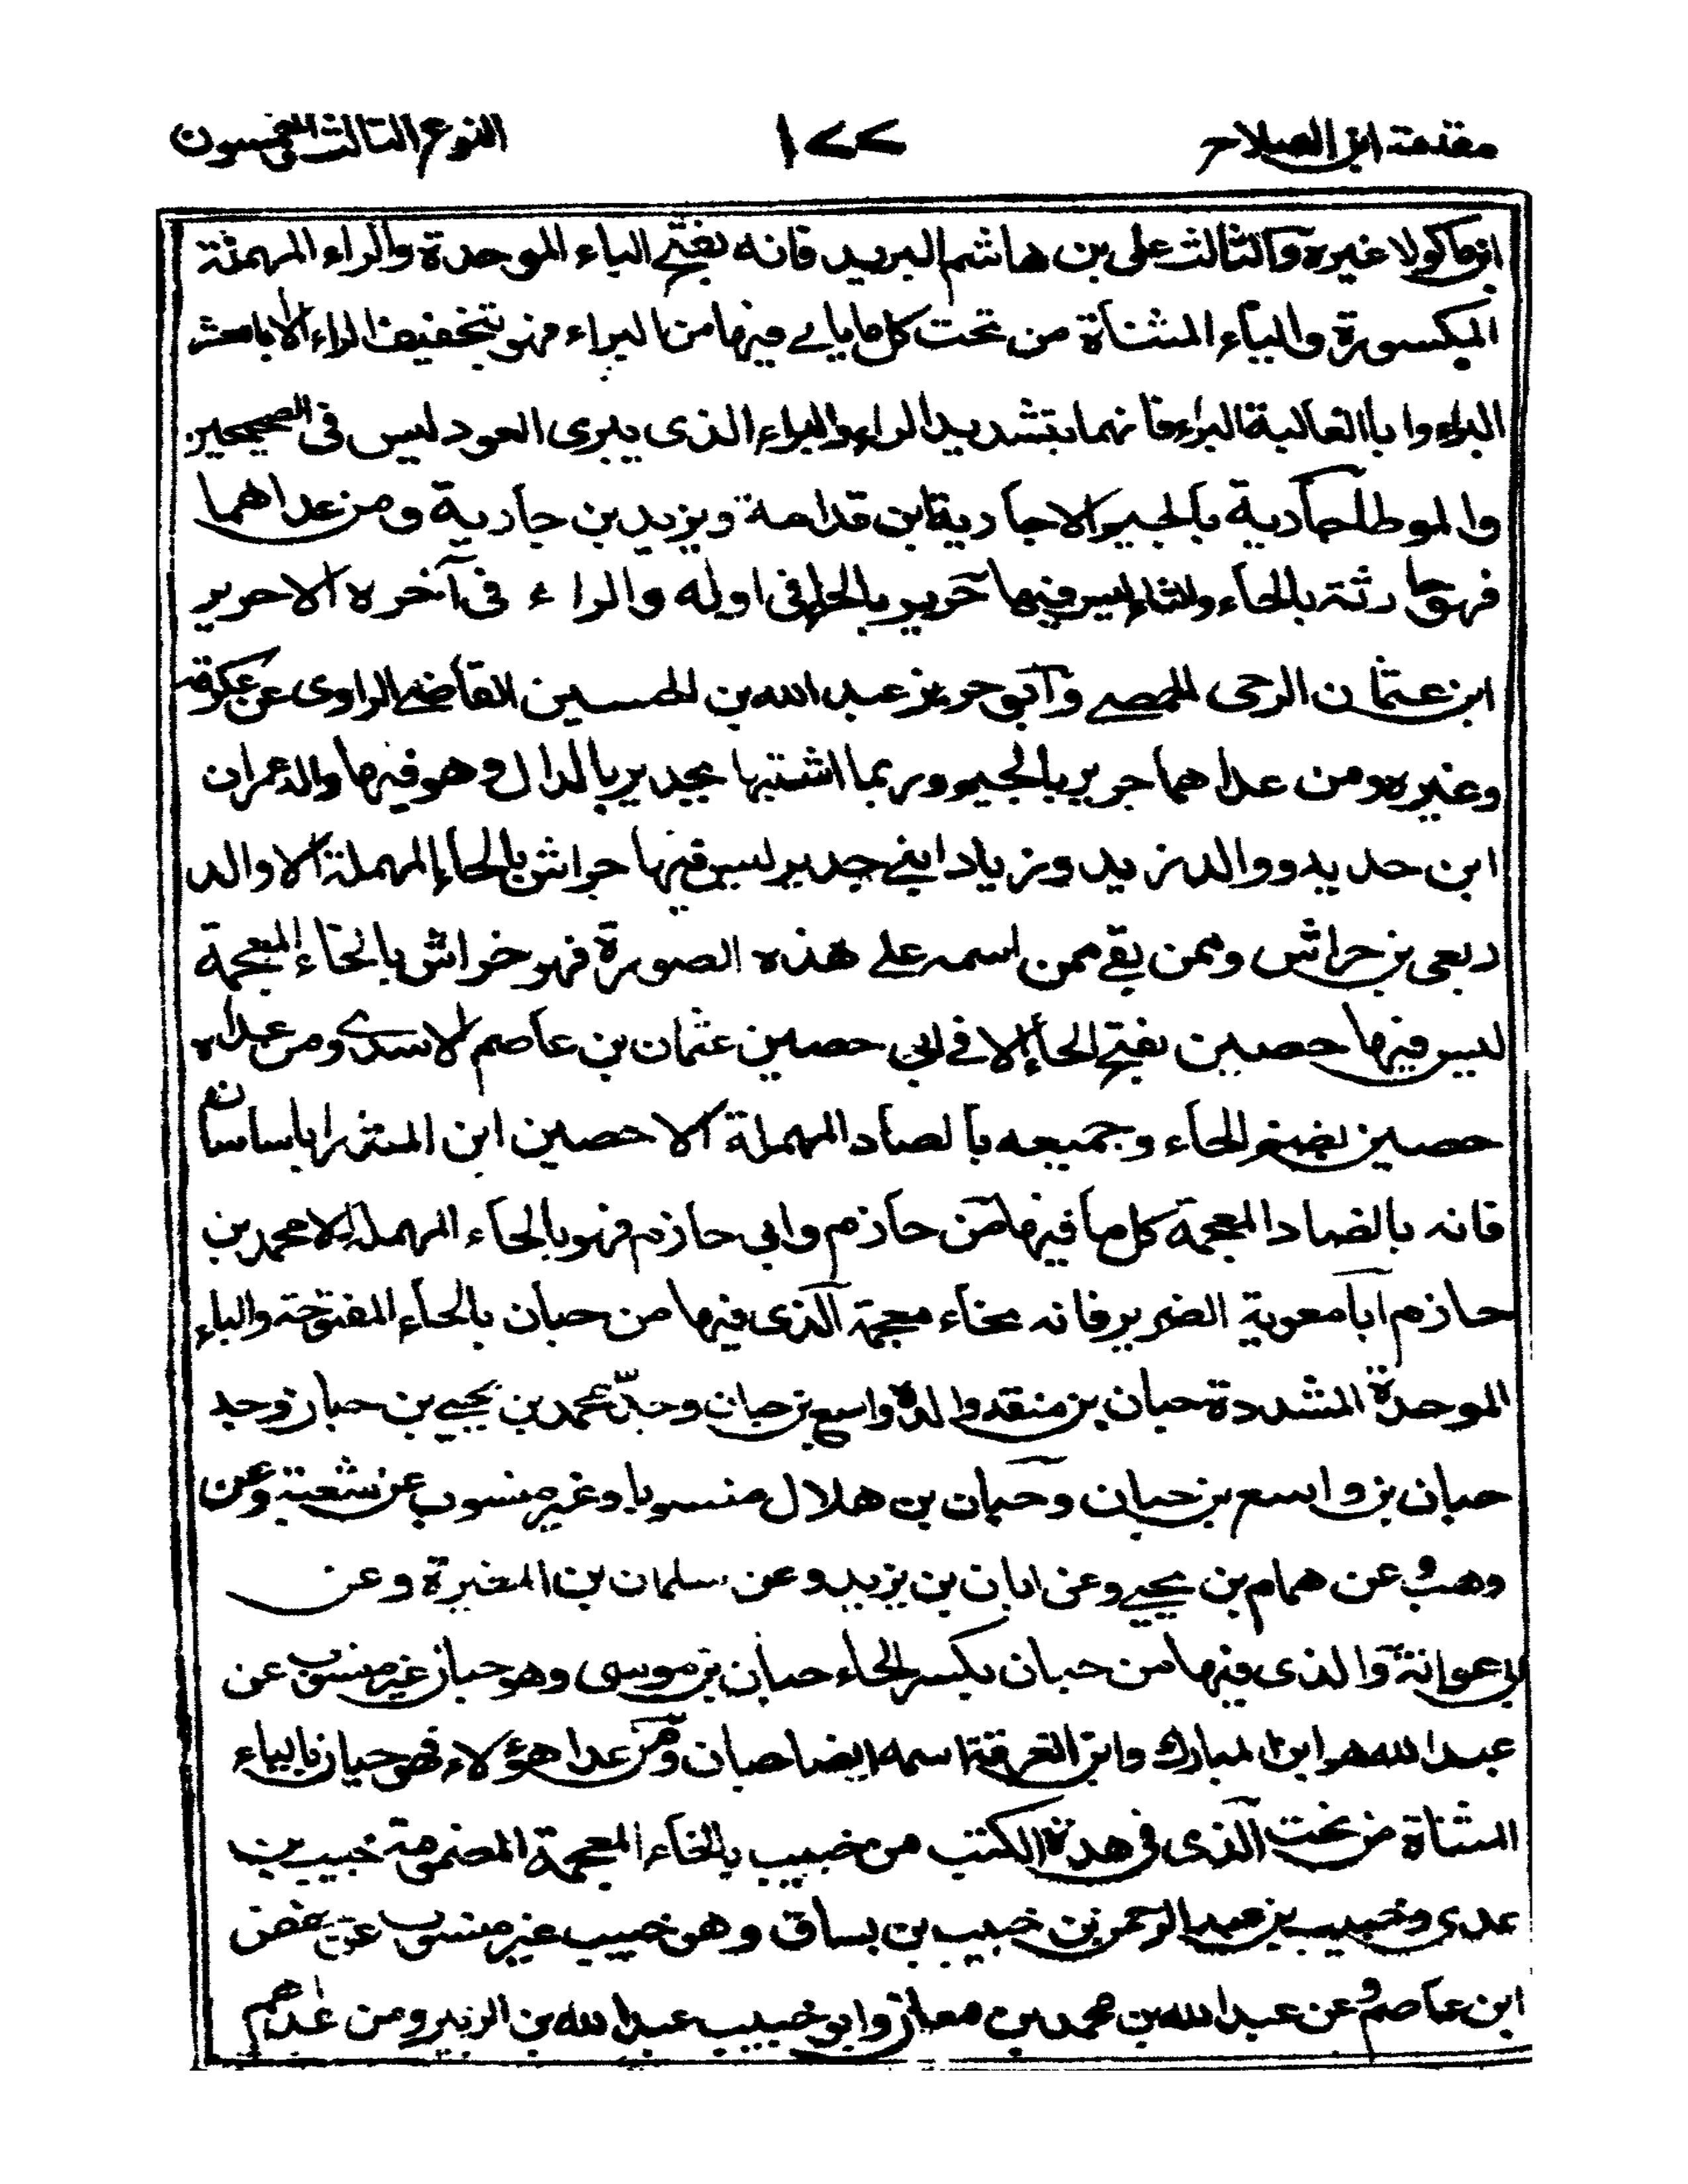 مقدمة ابن الصلاح ١٧٧ النوع الثالث الخمسون
ابن ماكولا غيره والثالث على بن هاشم البريد فانه بفتح الباء الموحدة والراء المهملة
المكسورة والياء المثناة من تحت كل ما ياتي فيها من البراء فهو بتخفيف الراء الا ابا معشر
البراء وابا العالية البراء فانهما بتشديد الراء والبراء الذى يبرى العود ليس فى الصحيحين
والموطا جارية بالجيم الا جارية ابن قدامة ويزيد بن جارية ومن عداهما
فهو حارثة بالحاء والثاء ليس فيها حريز بالحاء فى اوله والزاء فى آخره الا حريز
ابن عثمان الرحبى الحمصي وابو حريز عبد الله بن الحسين القاضي الراوى عن عكرمة
وغيره ومن عداهما جرير بالجيم وربما اشتبها بجدير بالدال وهو فيها والد عمران
ابن حدير ووالد زيد وزياد ابني حدير ليس فيها حراش بالحاء المهملة الا والد
ربعى بن حراش ومن بقي ممن اسمه على هذه الصورة فهو خراش بالخاء المعجمة
ليس فيها حصين بفتح الحاء الا في ابي حصين عثمان بن عاصم الاسدي ومن عداه
حصين بضم الحاء وجميعه بالصاد المهملة الا حضين ابن المنذر ابا ساسان
فانه بالضاد المعجمة كل ما فيها من حازم وابي حازم فهو بالحاء المهملة الا محمد بن
حازم ابا معوية الضرير فانه بخاء معجمة الذى فيها من حبان بالحاء المفتوحة والباء
الموحدة المشددة حبان بن منقذ والد واسع بن حبان وجد محمد بن يحيي بن حبان وجد
حبان بن واسع بن حبان وحبان بن هلال منسوبا وغير منسوب عن شعبة وعن
وهب وعن همام بن يحيي وعن ابان بن يزيد وعن سلمان بن المغيرة وعن
ابي عوانة والذى فيها من حبان بكسر الحاء حبان بن موسى وهو حبان غير منسوب عن
عبد الله هو ابن المبارك وابن العرقة اسمه ايضا حبان ومن عدا هؤلاء فهو حيان بالياء
المثناة من تحت الذى فى هذه الكتب من خبيب بالخاء المعجمة المضمومة خبيب بن
عدى وخبيب بن عبد الرحمن بن خبيب بن يساف وهو خبيب غير منسوب عن حفص
ابن عاصم وعن عبد الله بن محمد بن معن وابو خبيب عبد الله بن الزبير ومن عداهم